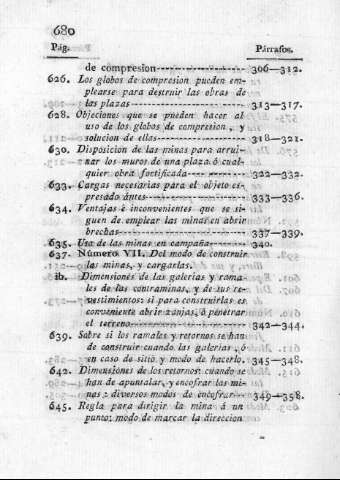 680
Pág. Párrafos.
de compresion 306—312.
626. Los globos de compresion pueden em-
plearse para destruir las obras de
las plazas 313—317.
628. Objeciones que se pueden hacer al
uso de los globos de compresion, y
solucion de ellas 318—321.
630. Disposicion de las minas para arrui-
nar los muros de una plaza ó cual-
quier obra fortificada 322—332.
633. Cargas necesarias para el objeto es-
presado ántes 333—336.
634. Ventajas é inconvenientes que se si-
guen de emplear las minas en abrir
brechas 337—339.
635. Uso de las minas en campaña 340.
637. Número VII. Del modo de construir
las minas, y cargarlas.
ib. Dimensiones de las galerías y rama-
les de las contraminas, y de sus re-
vestimientos: si para construirlas es
conveniente abrir zanjas, ó penetrar
el terreno 342—344.
639. Sobre si los ramales y retornos se han
de construir cuando las galerias, ó
en caso de sitio y modo de hacerlo. 345—348.
642. Dimensiones de los retornos: cuando se
han de apuntalar, y encofrar las mi-
nas: diversos modos de encofrar 349—358.
645. Regla para dirigir la mina á un
punto: modo de marcar la direccion